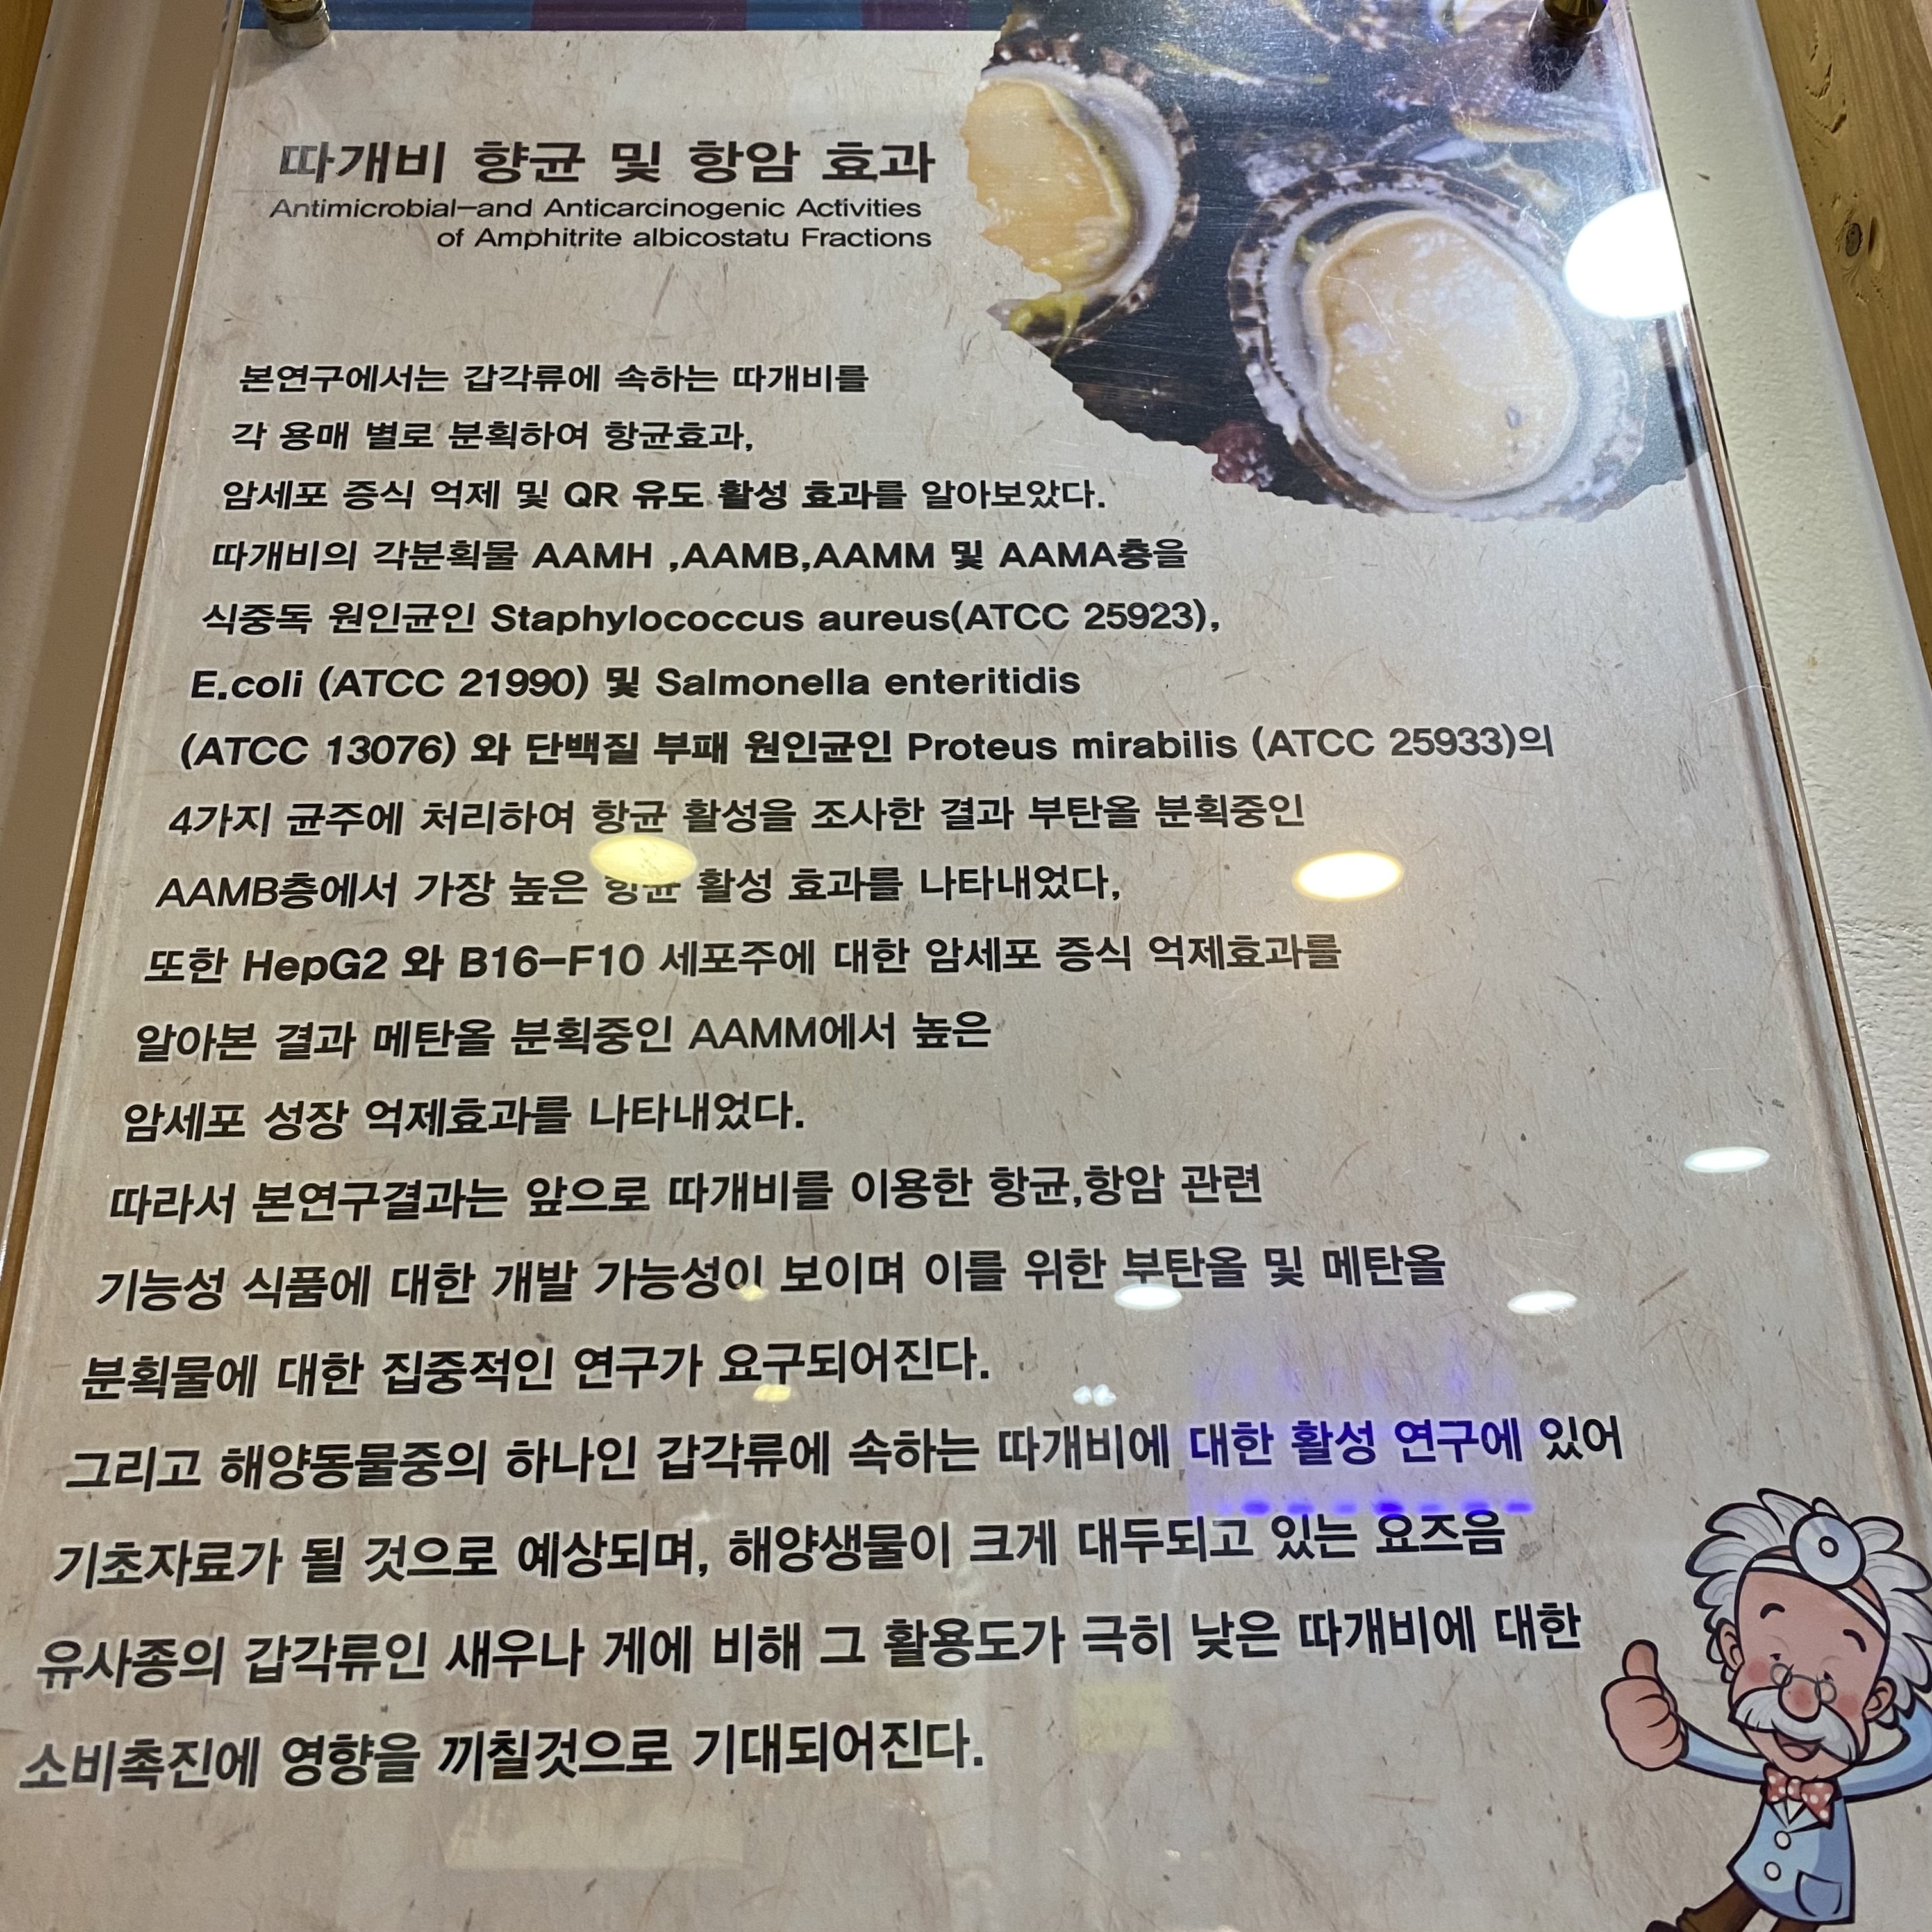 따개비 향균 및 항암 효과
Antimicrobial-and Anticarcinogenic Activities
of Amphitrite albicostatu Fractions
본연구에서는 갑각류에 속하는 따개비를
각 용매 별로 분획하여 항균효과,
암세포 증식 억제 및 QR 유도 활성 효과를 알아보았다.
따개비의 각분획물 AAMH ,AAMB,AAMM 및 AAMA층을
식중독 원인균인 Staphylococcus aureus(ATCC 25923),
E.coli (ATCC 21990) 및 Salmonella enteritidis
(ATCC 13076) 와 단백질 부패 원인균인 Proteus mirabilis (ATCC 25933)의
4가지 균주에 처리하여 항균 활성을 조사한 결과 부탄올 분획중인
AAMB층에서 가장 높은 항균 활성 효과를 나타내었다,
또한 HepG2 와 B16-F10 세포주에 대한 암세포 증식 억제효과를
알아본 결과 메탄올 분획중인 AAMM에서 높은
암세포 성장 억제효과를 나타내었다.
따라서 본연구결과는 앞으로 따개비를 이용한 항균,항암 관련
기능성 식품에 대한 개발 가능성이 보이며 이를 위한 부탄올 및 메탄올
분획물에 대한 집중적인 연구가 요구되어진다.
그리고 해양동물중의 하나인 갑각류에 속하는 따개비에 대한 활성 연구에 있어
기초자료가 될 것으로 예상되며, 해양생물이 크게 대두되고 있는 요즈음
유사종의 갑각류인 새우나 게에 비해 그 활용도가 극히 낮은 따개비에 대한
소비촉진에 영향을 끼칠것으로 기대되어진다.